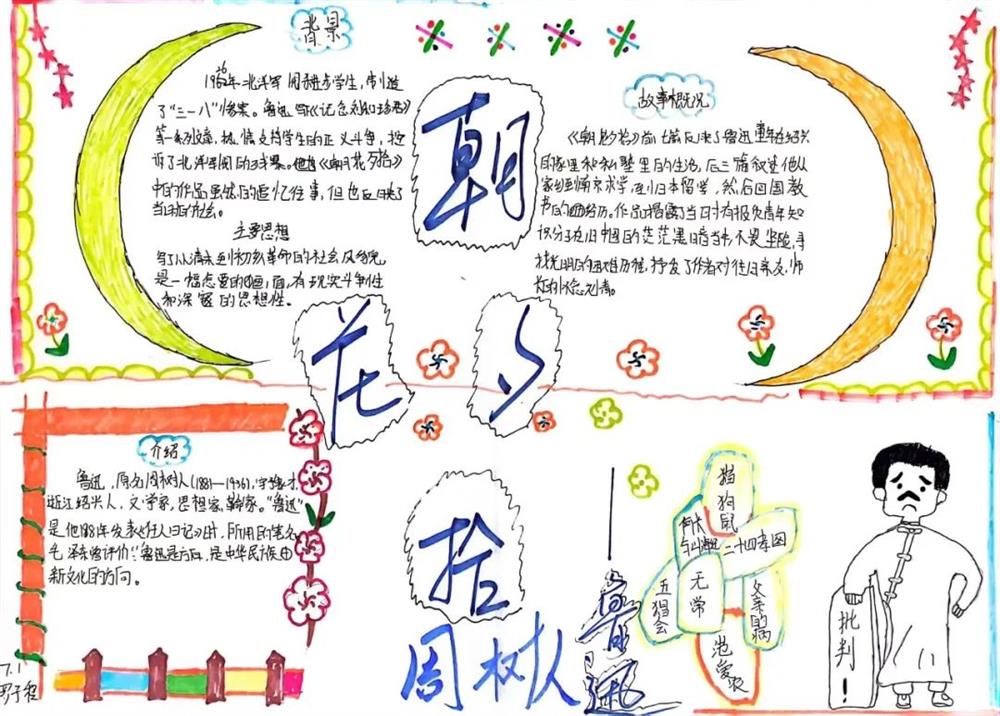 背景
1926年北洋军阀
学生，制造
了"三一八"惨案。鲁迅写《记念刘和珍君》
等一系列文章，热情支持学生的正义斗争，控
诉了北洋军阀的残暴。他《朝花夕拾》
中的作品虽然的追忆往事，但也反映了
当时的
主要思想
写了从清末到初辛革命的社会风
是一幅态要的画面，有现实斗争性
和深邃的思想性。
朝
花
夕
拾
故事概况
《朝花夕拾》前七篇反映了鲁迅童年在绍兴
的家里和私塾里的生活，后三篇叙述他从
家到南京求学，到日本留学，然后回国教
书的经历。作品揭露了当时有报负青年知
识分子在旧中国的茫茫黑暗当中不畏坚险，寻
找光明的困难历程，抒发了作者对往日亲友，师
长的怀念之情。
介绍
鲁迅，原名周树人(1881—1936)，字豫才
浙江绍兴人，文学家，思想家，革命家。"鲁迅"
是他1918年发表《狂人日记》时，所用的笔名
毛泽东评价"鲁迅的方向，是中华民族
新文化的方向。
7.1
周树人
鲁迅
猫狗鼠
二十四孝图
五猖会
无常
父亲的病
范爱农
批判！